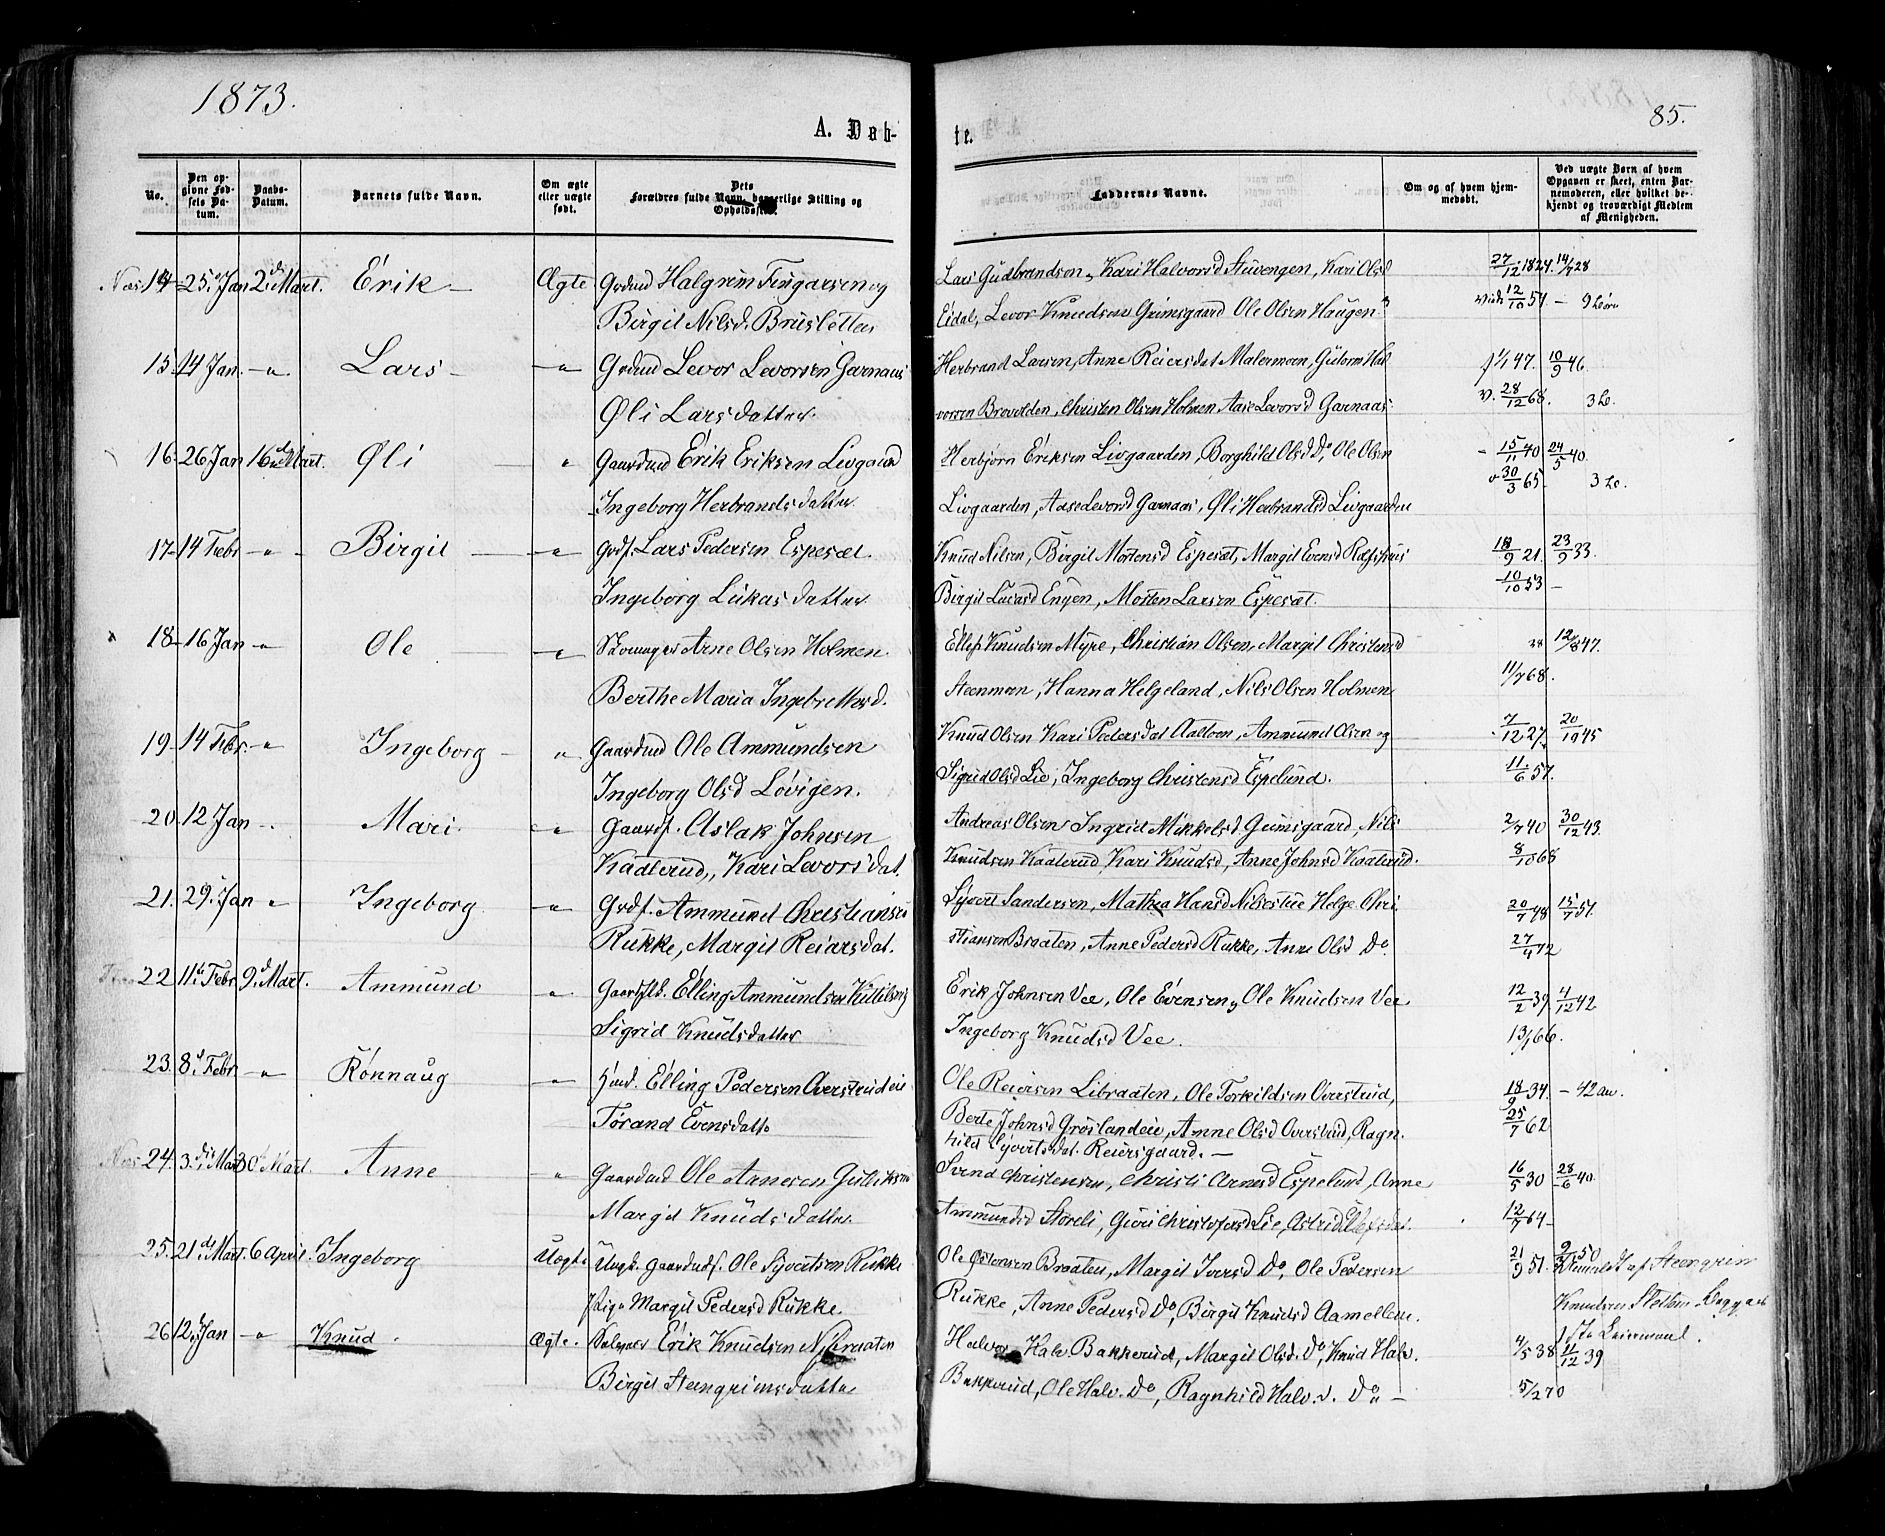 1873.
A. Døb-
te.
85.
No.
Den op-
givne Fød-
sels Da-
tum.
Daabs-
Datum.
Barnets fulde Navn.
Om ægte
eller uægte
født.
Dets
Forældres fulde Navn, borgerlige Stilling og
Opholdssted.
Faddernes Navne.
Om og af hvem hjem-
medøbt.
Ved uægte Børn af hvem
Opgaven er skeet, enten Bar-
nemoderen, eller hvilket be-
kjendt og troværdigt Medlem
af Menigheden.
Næs 14 25 Jan 2 Mart. Erik Ægte Grdmd Halgrim Fingarsen og
Birgit Nilsd. Brusletten
Lars Gudbrandsen, Kari Halvorsd Stuvengen, Kari Olsd 27/12 1824. 14/7 28
Eidal, Levor Knudsen Grimsgaard Ole Olsen Haugen 12/10 57 - 9
15 14 Jan. - " Lars - " Grdmd Levor Levorsen Garnaas
Øli Larsdatter
Herbrand Larsen, Anne Reiersdat Malermoen, Guttorm Hal 47. 10/9 46
vorsen Brovolden, Christen Olsen Holmen, Aase Levorsd Garnaas. v. 28/12 68. 3
16. 26 Jan 16 Mart. Øli " Gaardmd Erik Eriksen Livgaard
Ingeborg Herbrandsdatter
Herbjørn Eriksen Livgaarden, Borghild Olsd Do, Ole Olsen 15/11 40 24/5 40.
Livgaarden, Aase Levorsd Garnaas, Øli Herbrandsd Livgaarden 30/3 65. 3
17 14 Febr - " - Birgit - " Grdf. Lars Pedersen Espeset.
Ingeborg Lukasdatter
Knud Nilsen, Birgit Mortensd Espeset, Margit Evensd 18/9 21. 23/9 33.
Birgit Lucasd Engen, Morten Larsen Espeset. 10/10 53 -
18 - 16 Jan - " Ole - " Skomager Arne Olsen Holmen
Berthe Maria Ingebretsd.
Ellef Knudsen Myre, Christian Olsen, Margit Christensd 28 12/8 47.
Steenmoen, Hanna Helgeland, Nils Olsen Holmen 11/7 68.
19 - 14 Febr. - " Ingeborg - " Gaardmd Ole Ammundsen
Ingeborg Olsd Løvigen.
Knud Olsen Kari Pedersdat Aaltoen, Ammund Olsen og 7/12 27. 20/10 45
Sigrid Olsd Lie, Ingeborg Christensd Espelund. 11/6 57.
20. 12 Jan - " Mari. " Gaardf. Aslak Johnsen
Kaalerud, Kari Levorsdat.
Andreas Olsen Ingrid Mikkelsd Grimsgaard, Nils 2/7 40 30/12 43.
Knudsen Kaalerud, Kari Knudsd, Anne Johnsd Kaalerud. 8/10 68
21. 29 Jan " Ingeborg " Grdf. Ammund Christiansen
Rukke, Margit Reiarsdat.
Syvert Sandersen, Mathea Hansd Nilsestue Helge Chri 20/7 48 15/7 51.
stiansen Braaten, Anne Pedersd Rukke, Anne Olsd Do 27/4 72
22 11 Febr 9 Mart. Ammund " Gaardflb. Elling Ammundsen Kittilsvig
Sigrid Knudsdatter
Erik Johnsen Vee, Ole Evensen, Ole Knudsen Vee 12/2 39 4/12 42
Ingeborg Knudsd Vee. 13/1 66.
23. 8 Febr - " Rønnaug - " Hmd. Elling Pedersen Overstrudeie
Torand Evensdatte
Ole Reiersen Libraaten, Ole Torkildsen Overstrud, 18/9 34. - 42
Berte Johnsd Grøslandeie, Anne Olsd Overstrud, Ragn. 25/7 62
hild Syvertsdat. Reiersgaard. -
24. 3 Mart 30 Mart. Anne " Gaardmd Ole Arnesen Gulliksen
Margit Knudsdatter
Svend Christensen, Christi Arnesd Espelund, Anne 16/5 30 28/6 40.
Ammundsd Storeli, Guri Christofersd Lie, Astrid 12/7 64 -
25. 21 Mart. 6 April. Ingeborg Uægte Ungk. Gaardmdf. Ole Syvertsen Rukke
Pige Margit Pedersd Rukke.
Ole Østensen Braaten, Margit Iversd Do, Ole Pedersen 21/9 51. 9/2 50
Anmeldt af Steengrim
Rukke, Anne Pedersd Do, Birgit Knudsd Aamellem.
Knudsen
1ste Leiermaal.
26 12 Jan - " Knud. Ægte. Erik Knudsen Nybraaten
Birgit Steengrimsdatter
Halvor Halv. Bakkerud, Margit Olsd. Do, Knud Halv. 4/5 38 11/12 39
Bakkerud, Ole Halv. Do, Ragnhild Halv. d. Do - 5/2 70